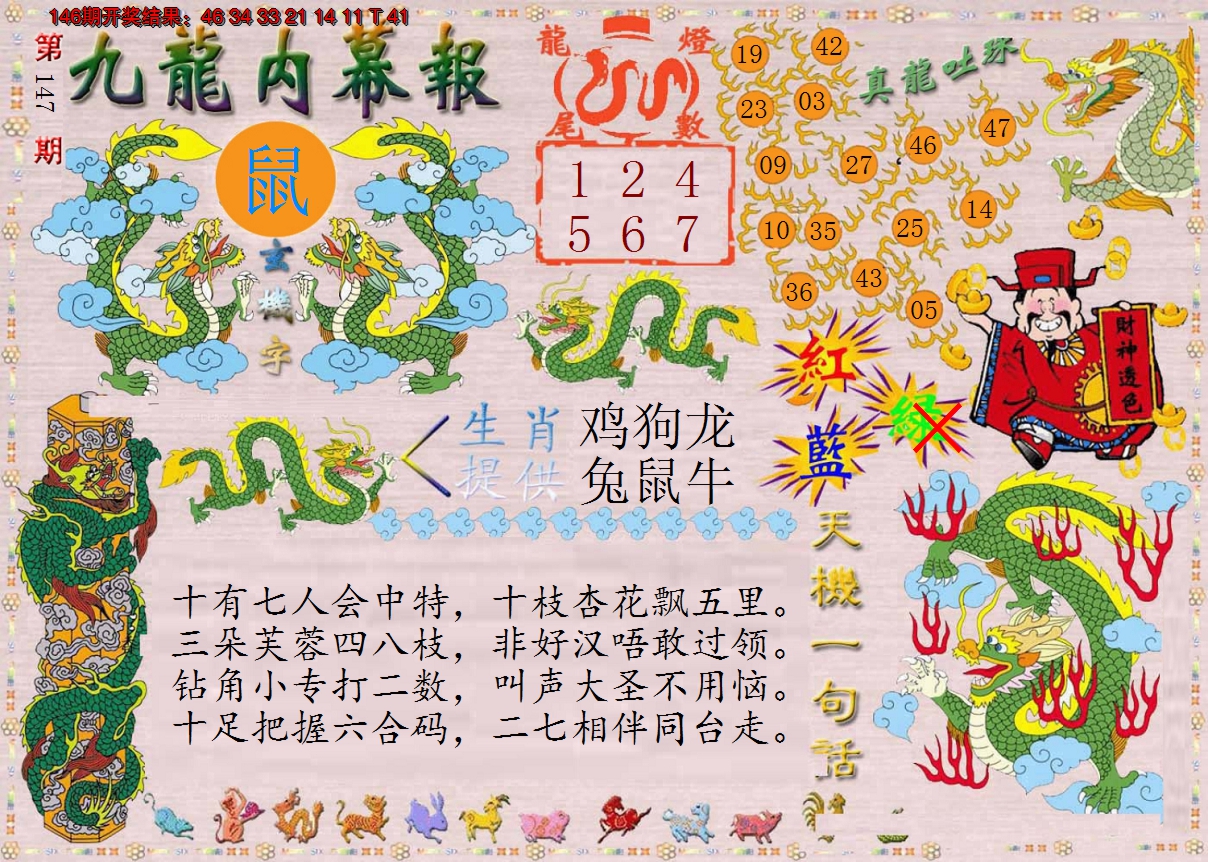 146期开奖结果：46 34 33 21 14 11 T 41
第147期
九龍内幕報
鼠
玄機字
龍燈尾數
1 2 4
5 6 7
真龍吐珠
19 42
23 03
46 47
09 27
10 35 25 14
36 43 05
紅
綠
藍
財神透色
生肖 鸡狗龙
提供 兔鼠牛
十有七人会中特，十枝杏花飘五里。
三朵芙蓉四八枝，非好汉唔敢过领。
钻角小专打二数，叫声大圣不用恼。
十足把握六合码，二七相伴同台走。
天機一句話